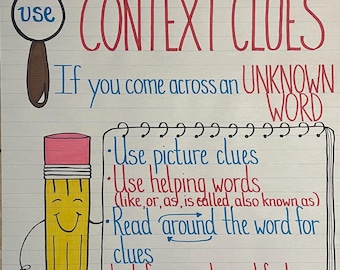 use
CONTEXT CLUES
If you come across an UNKNOWN
WORD
• Use picture clues
• Use helping words
(like, or, as, is called, also known as)
• Read around the word for
clues